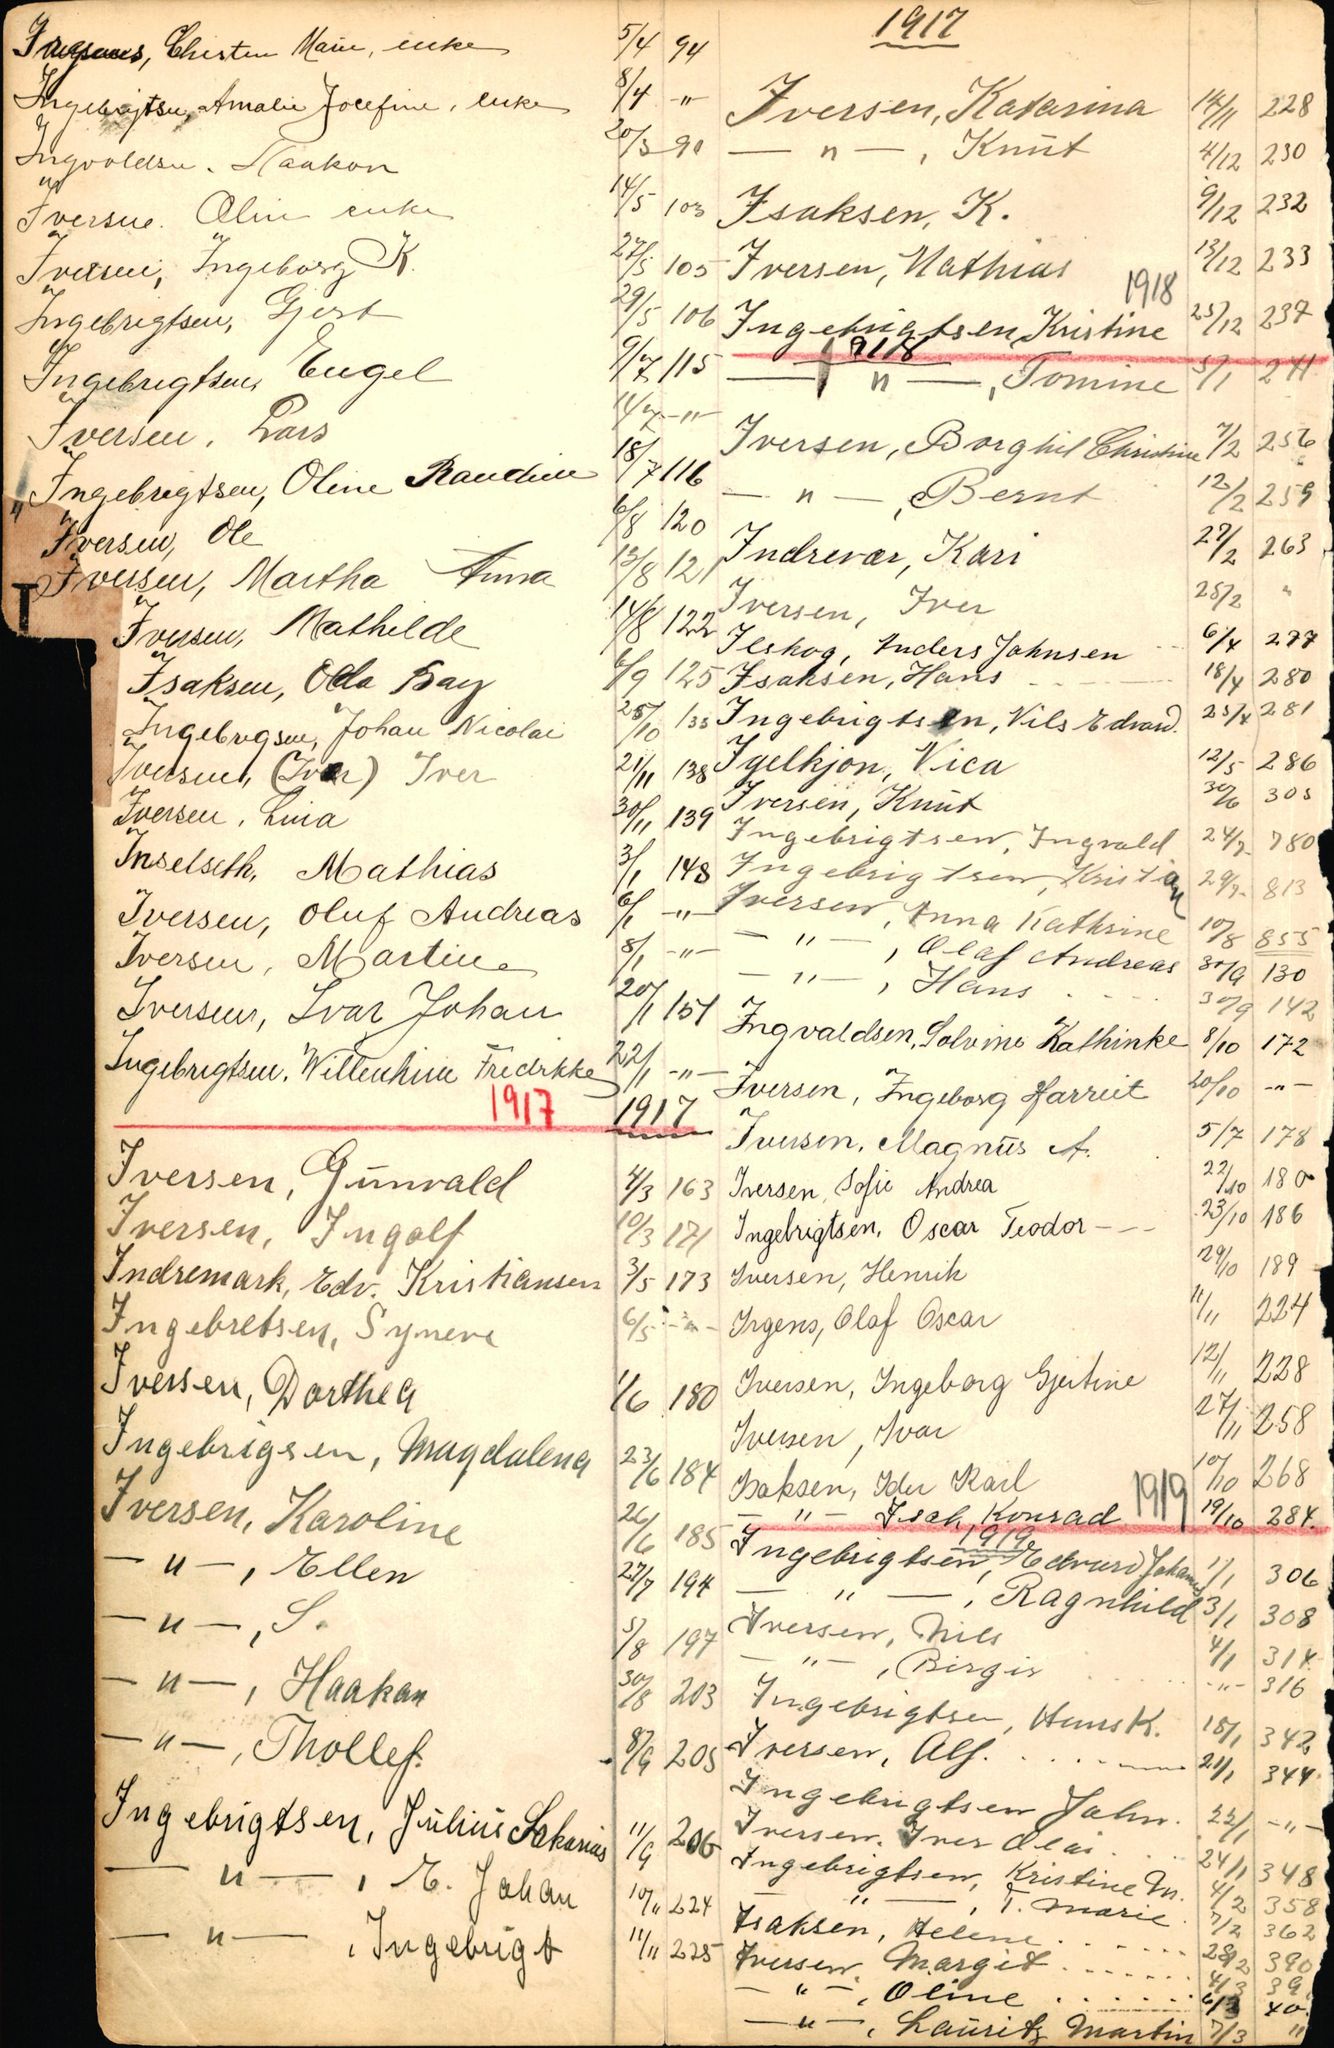 Christen Marie, enke 5/4 94
Ingebrigtsen, Amalie Jocefine, enke 8/4 "
Ingvoldsen. Haakon 20/3 90
Iversen. Olin enke 14/5 103
Iversen, Ingeborg K. 27/5 105
Ingebrigtsen, Gjert 29/5 106
Ingebrigtsen, Engel 9/7 115
Iversen, Lars 11/7 "
Ingebrigtsen, Oline Raudine 18/7 116
Iversen, Ole 6/8 120
Iversen, Martha Anna 13/8 121
Iversen, Mathilde 14/8 122
Isaksen, Olla Bay 6/9 125
Ingebrigsen, Johan Nicolai 25/10 133
Iversen, (Ivar) Iver 21/11 138
Iversen, Lina 30/11 139
Inselseth, Mathias 3/1 148
Iversen, Oluf Andreas 6/1 "
Iversen, Martin 8/1 "
Iversen, Ivar Johan 20/1 151
Ingebrigtsen, Willenhine Fredrikke 22/1 "
1917 1917
Iversen, Gunvald 4/3 163
Iversen, Ingolf 10/3 171
Indremark, Edv. Kristiansen 3/5 173
Ingebretsen, Syneve 6/5 "
Iversen, Dorthea 1/6 180
Ingebrigsen, Magdalena 23/6 184
Iversen, Karoline 26/6 185
— " —, Ellen 27/7 194
— " —, S. 5/8 197
— " —, Haakan 30/8 203
— " —, Thollef. 8/9 205
Ingebrigtsen, Julius Sakarias 11/9 206
— " —, E. Johan 10/11 224
— " —, Ingebrigt 11/11 225
1917
Iversen, Katarina 14/11 228
— " —, Knut 4/12 230
Isaksen, K. 9/12 232
Iversen, Mathias 13/12 233
1918
Ingebrigtsen, Kristine 25/12 237
1918
— " —, Tomine 5/1 241
Iversen, Borghil Christine 7/2 256
— " —, Bernt 12/2 259
Indrevær, Kari 27/2 263
Iversen, Iver 25/2 "
Ilskog, Anders Johnsen 6/4 277
Isaksen, Hans 18/4 280
Ingebrigtsen, Nils Edvard. 23/4 281
Igelkjon, Vica 12/5 286
Iversen, Knut 30/6 305
Ingebrigtsen, Ingvald 24/7 780
Ingebrigtsen, Kristian 29/7 813
Iversen, Anna Kathrine 10/8 855
— " —, Olaf Andreas 30/9 130
— " —, Hans 30/9 142
Ingvaldsen, Solvine Kathinke 8/10 172
Iversen, Ingeborg Harreit 20/10 "
Iversen, Magnus A. 5/7 178
Iversen, Sofie Andrea 22/10 180
Ingebrigtsen, Oscar Teodor 23/10 186
Iversen, Henrik 29/10 189
Irgens, Olaf Oscar 11/11 224
Iversen, Ingeborg Gjertine 12/11 228
Iversen, Ivar 27/11 258
Isaksen, Karl 10/10 268
1919
— " — Konrad 19/10 284.
1919
Ingebrigtsen, Edvard Johannes 1/1 306
— " —, Ragnhild 3/1 308
Iversen, Nils 4/1 314
— " —, Birgit " 316
Ingebrigtsen, Hans K. 18/1 342
Iversen, Alf. 21/1 344
Ingebrigtsen John. 22/1 "
Iversen, Iver Olai 24/1 348
Ingebrigtsen, Kristine M. 4/2 358
— " —, T. Marie 7/2 362
Isaksen, Helene 28/2 390
Iversen, Margit 4/3 39
— " —, Oline 6/3 40
— " —, Lauritz Martin 7/3 "